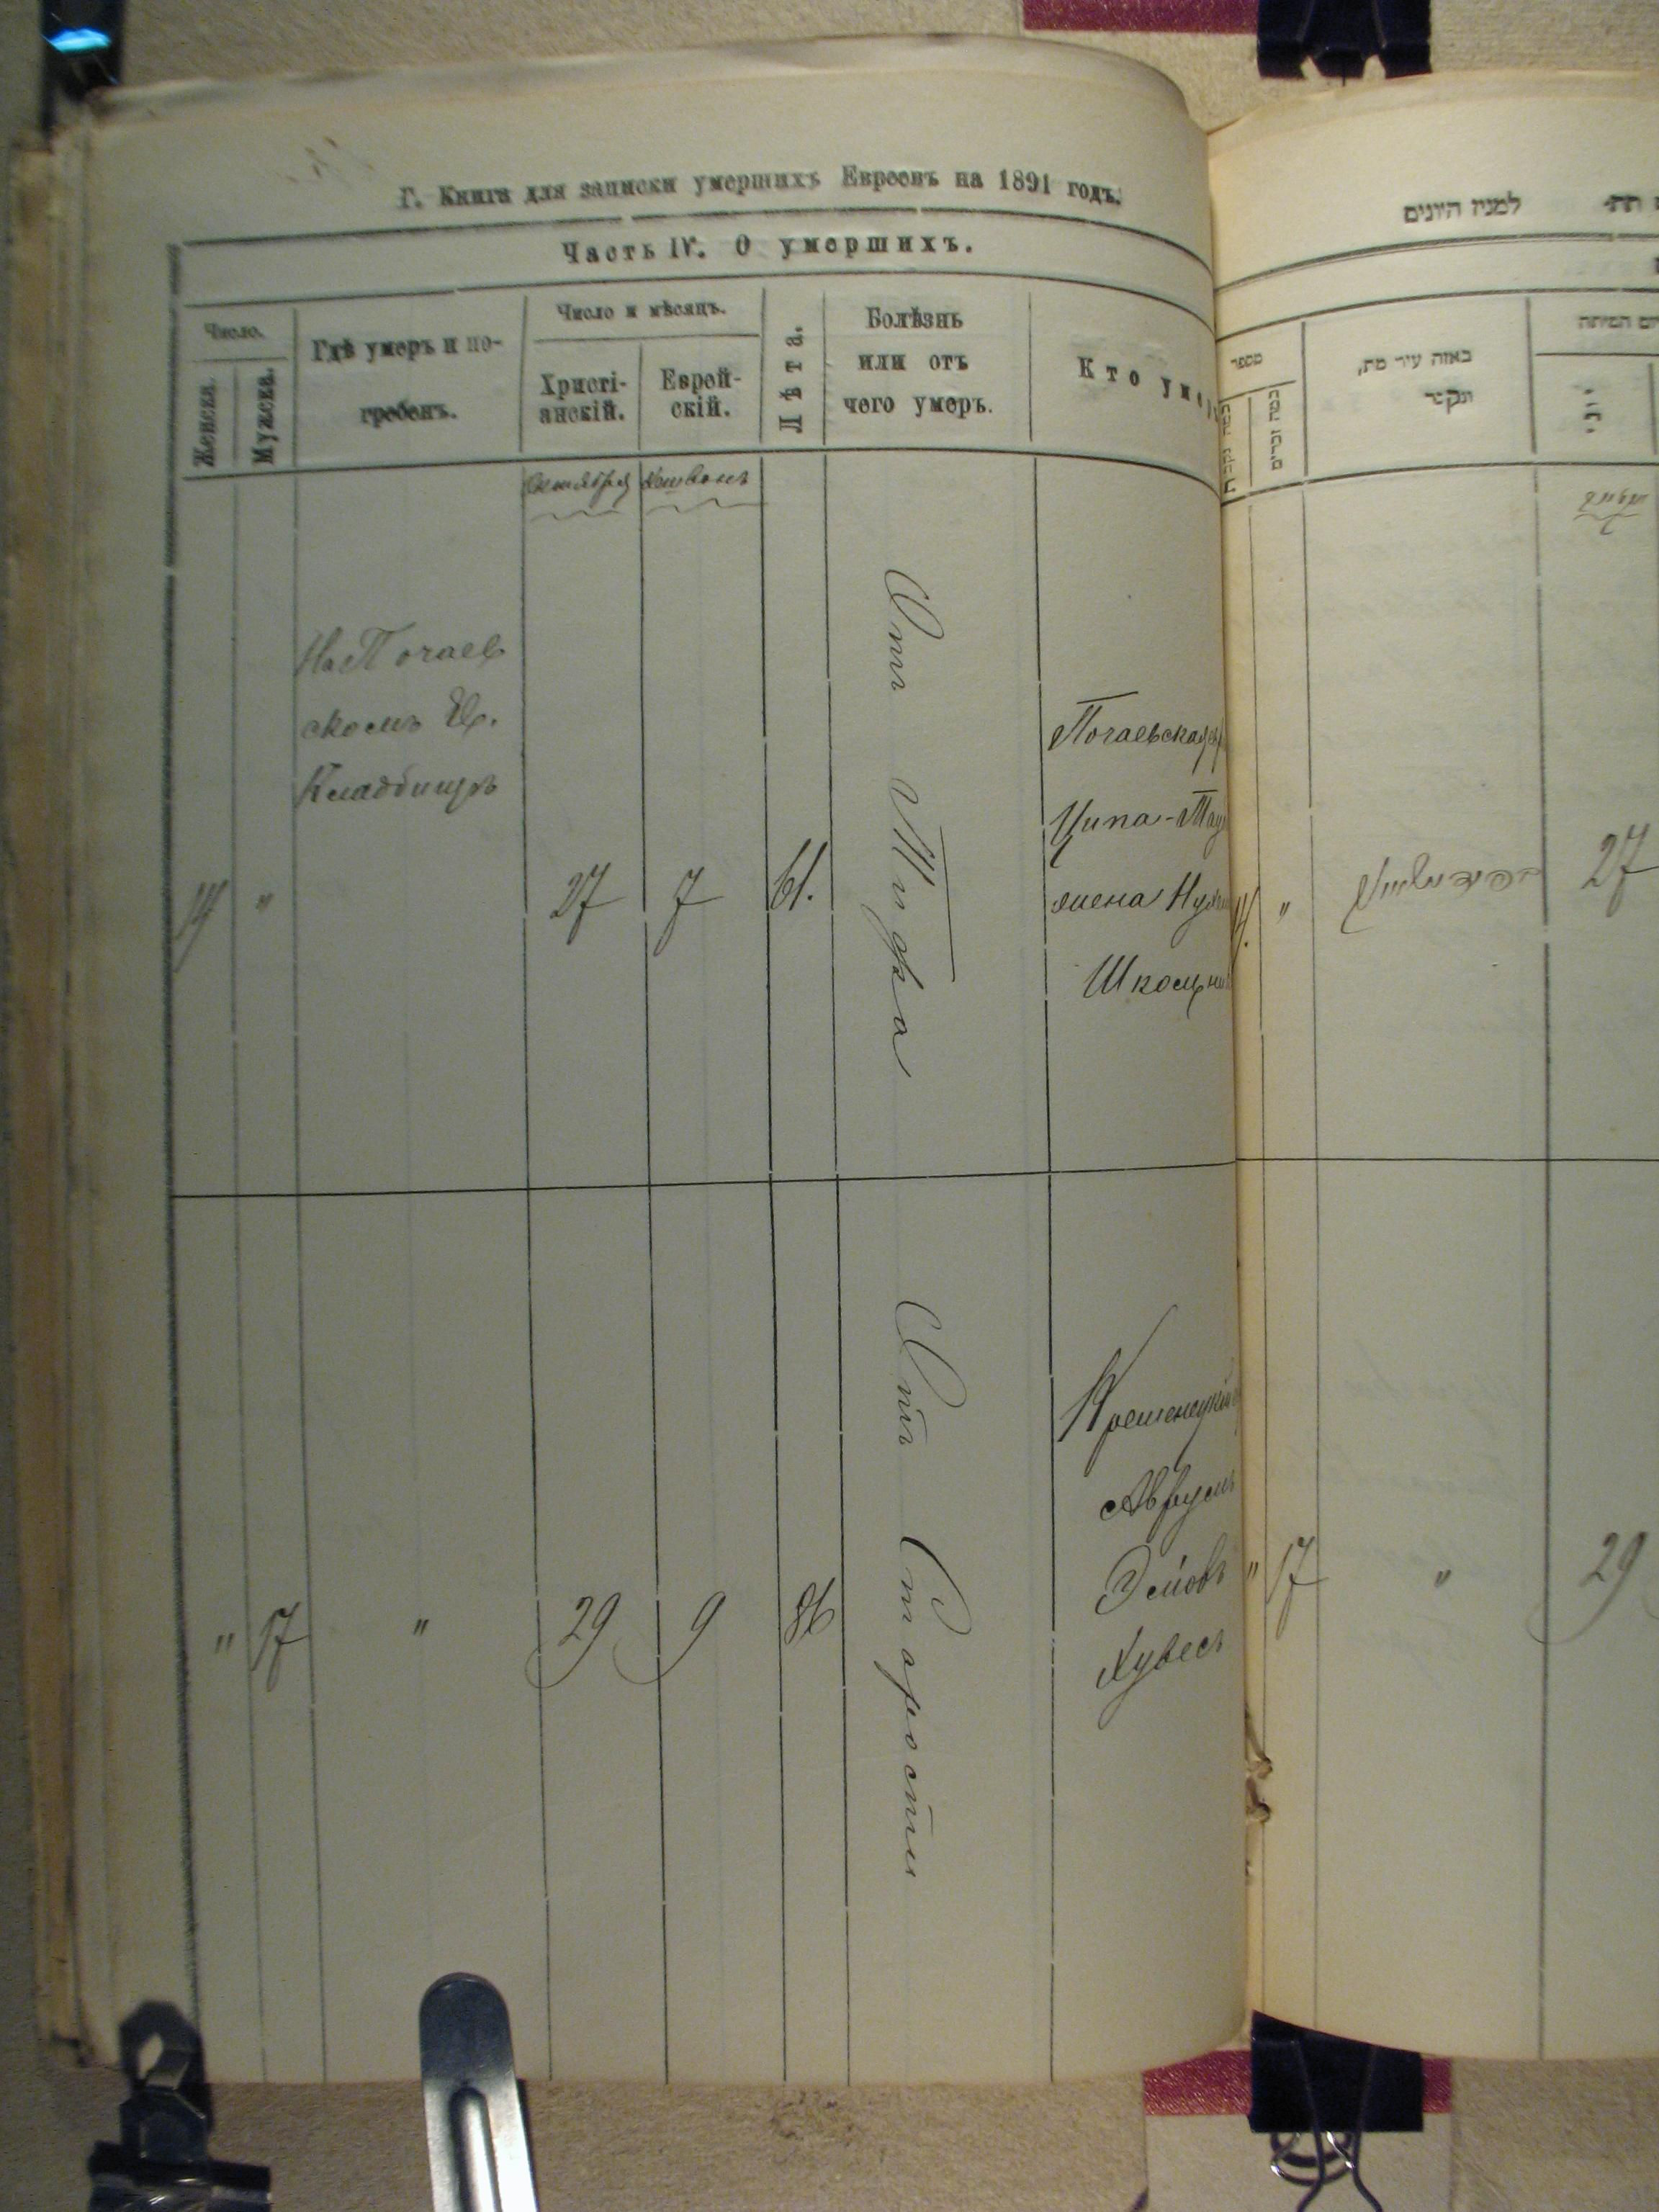 Г. Книга для записки умершихъ Евреевъ на 1891 годъ.
Часть IV. О умершихъ.
Число.
Женска.
Мужска.
Гдѣ умеръ и по-
гребенъ.
Число и мѣсяцъ.
Христі-
анскій.
Еврей-
скій.
Лѣта.
Болѣзнь
или отъ
чего умеръ.
Кто умер
Октября
Хешвонъ
На Почаев
скомъ Ев.
Кладбищѣ
14
"
27
7
61.
Отъ Тифа
Почаевская
Ципа-
жена
Школьни
"
17
"
29
9
86
Отъ Старости
Кременецкій
Аврумъ
Хувесъ
למנין היונים
מספר
באזה עיר מת,
ונקבר
יום המיתה
יוני
14.
"
27
"
17
"
29